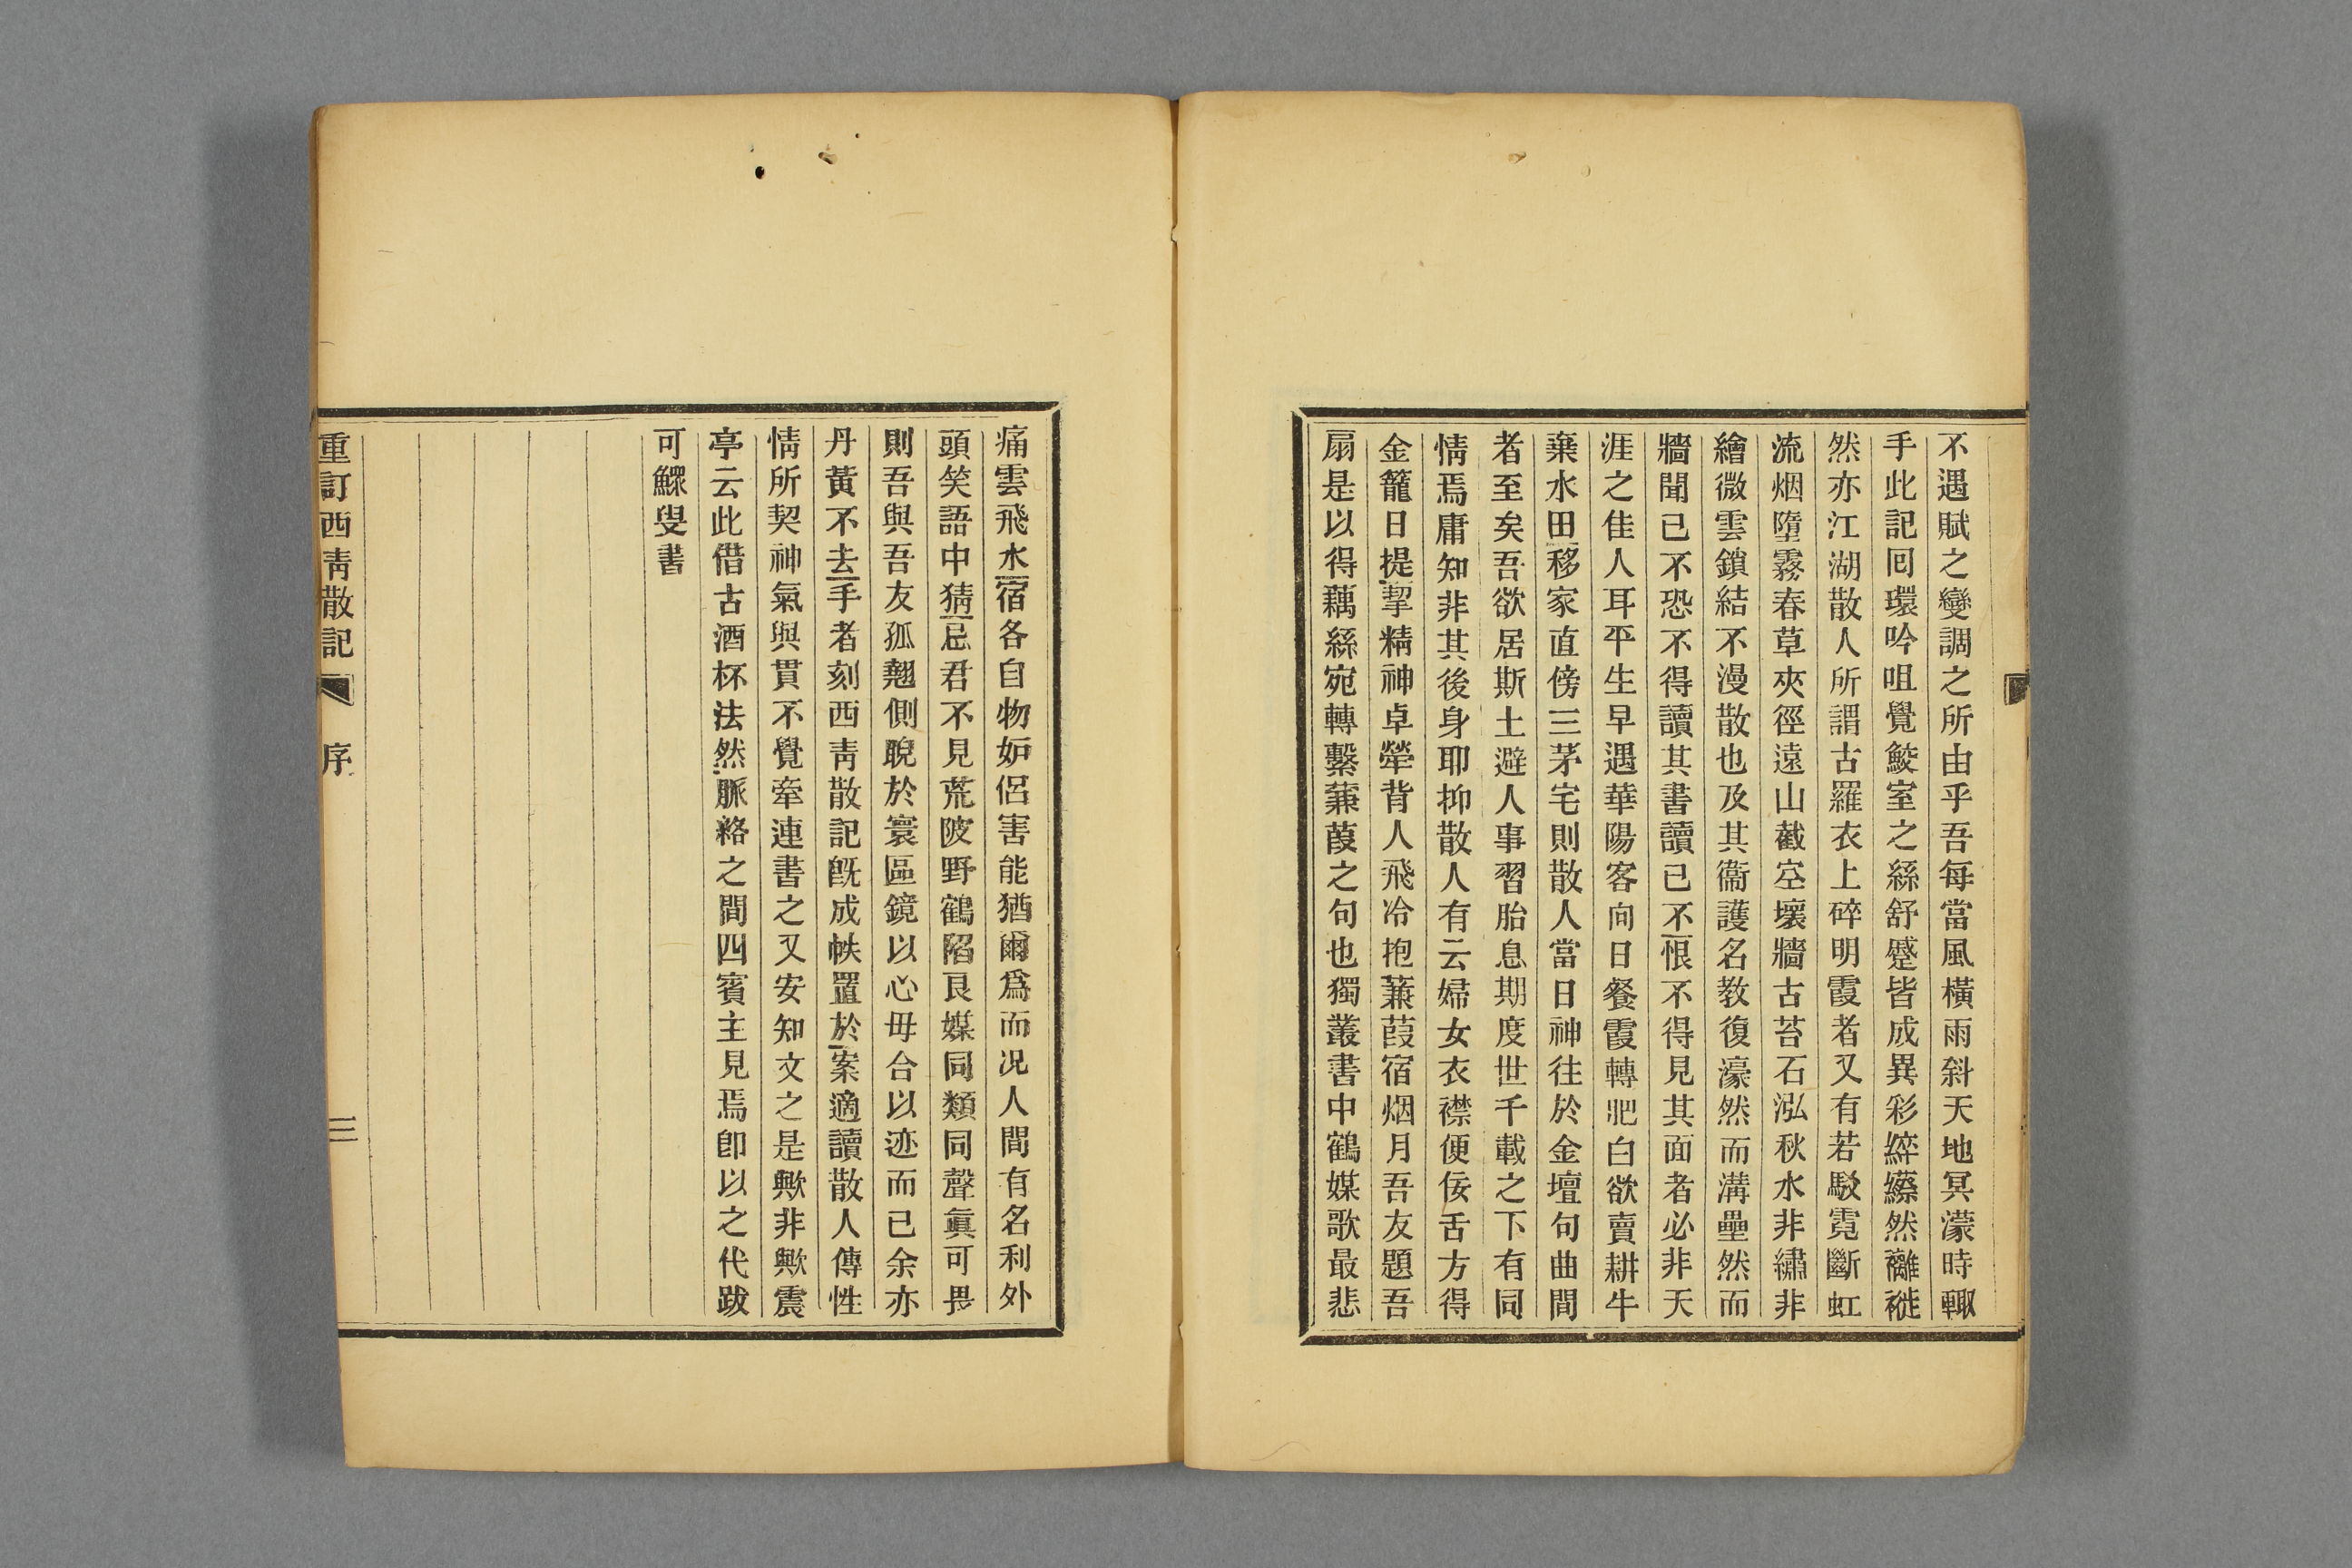 不遇賦之變調之所由乎吾每當風橫雨斜天地冥濛時輙
手此記囘環吟咀覺鮫室之絲舒蹙皆成異彩縩然褵褷
然亦江湖散人所謂古羅衣上碎明霞者又有若駁霓斷虹
流烟墮霧春草夾徑遠山截空壞牆古苔石泓秋水非繡非
繪微雲鎖結不漫散也及其衞護名教復濠然而溝壘然而
牆聞已不恐不得讀其書讀已不恨不得見其面者必非天
涯之佳人耳平生早遇華陽客向日餐霞轉肥白欲賣耕牛
棄水田移家直傍三茅宅則散人當日神往於金壇句曲間
者至矣吾欲居斯土避人事習胎息期度世千載之下有同
情焉庸知非其後身耶抑散人有云婦女衣襟便佞舌方得
金籠日提挈精神卓犖背人飛冷抱蒹葭宿烟月吾友題吾
扇是以得藕絲宛轉繫蒹葭之句也獨叢書中鶴媒歌最悲
痛雲飛水宿各自物妒侶害能猶爾爲而况人間有名利外
頭笑語中猜忌君不見荒陂野鶴陷良媒同類同聲眞可畏
則吾與吾友孤翹側睨於寰區鏡以心毋合以迹而已余亦
丹黃不去手者刻西靑散記旣成帙置於案適讀散人傳性
情所契神氣與貫不覺牽連書之又安知文之是歟非歟震
亭云此借古酒杯法然脈絡之間四賓主見焉卽以之代跋
可鰥叟書
重訂西靑散記 序 三